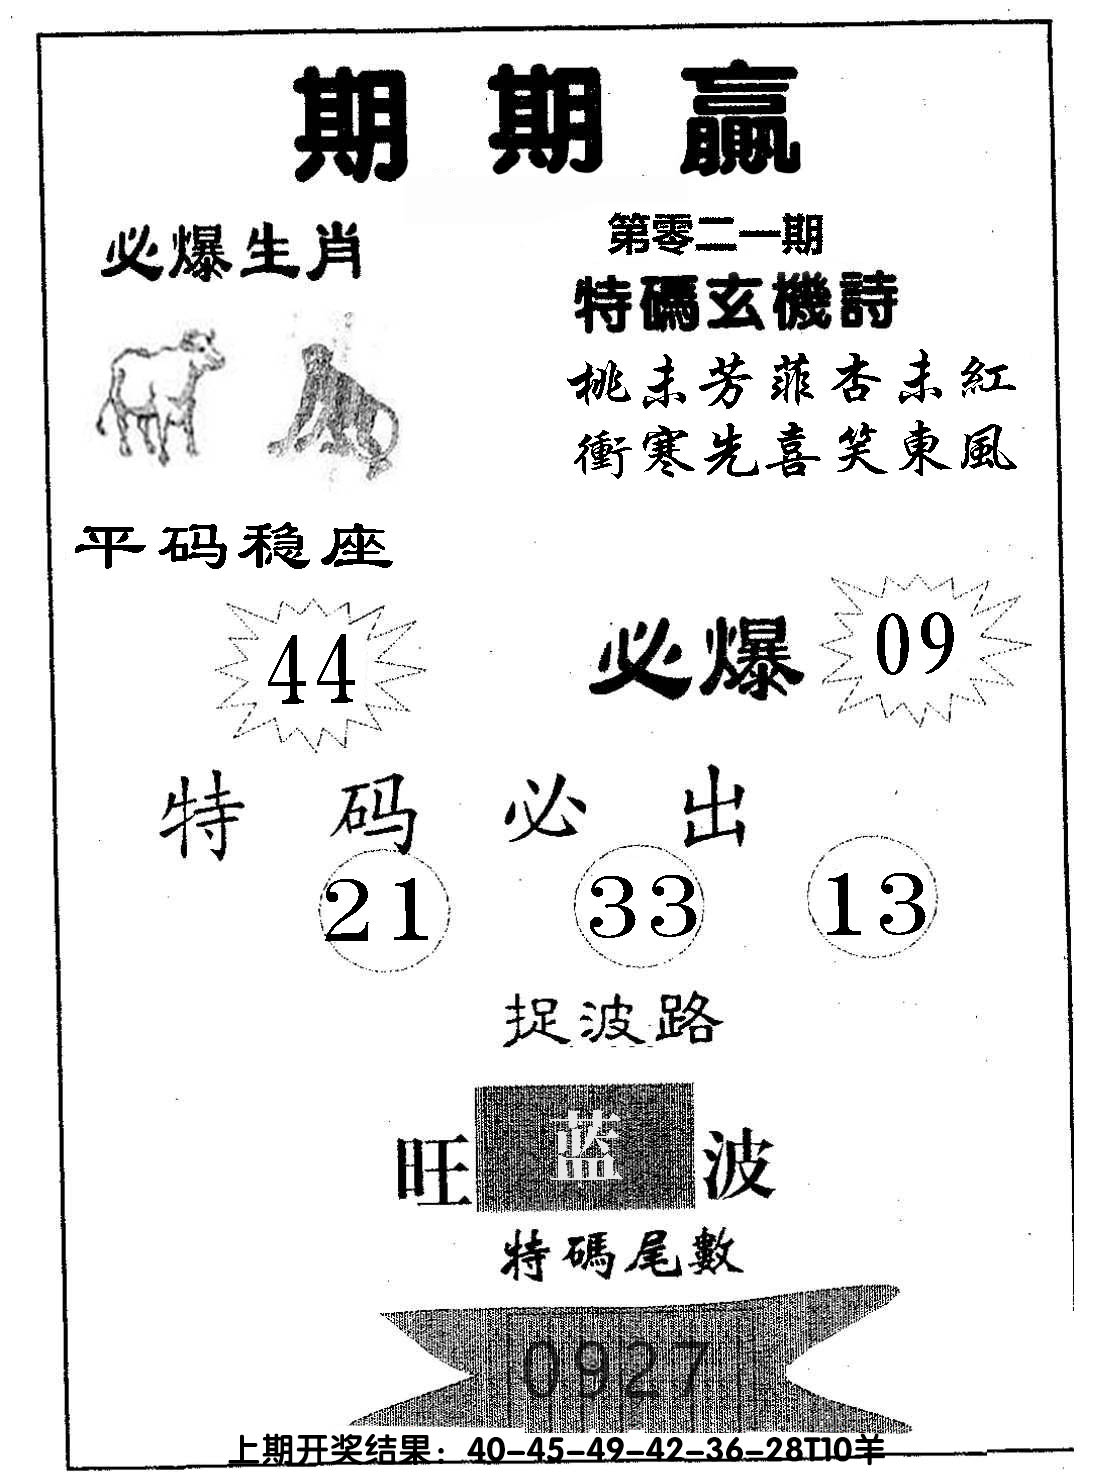 期期贏
必爆生肖
第零二一期
特碼玄機詩
桃未芳菲杏未紅
衝寒先喜笑東風
平码稳座
44
必爆 09
特码必出
21 33 13
捉波路
旺 蓝 波
特碼尾數
0927
上期开奖结果：40-45-49-42-36-28T10羊